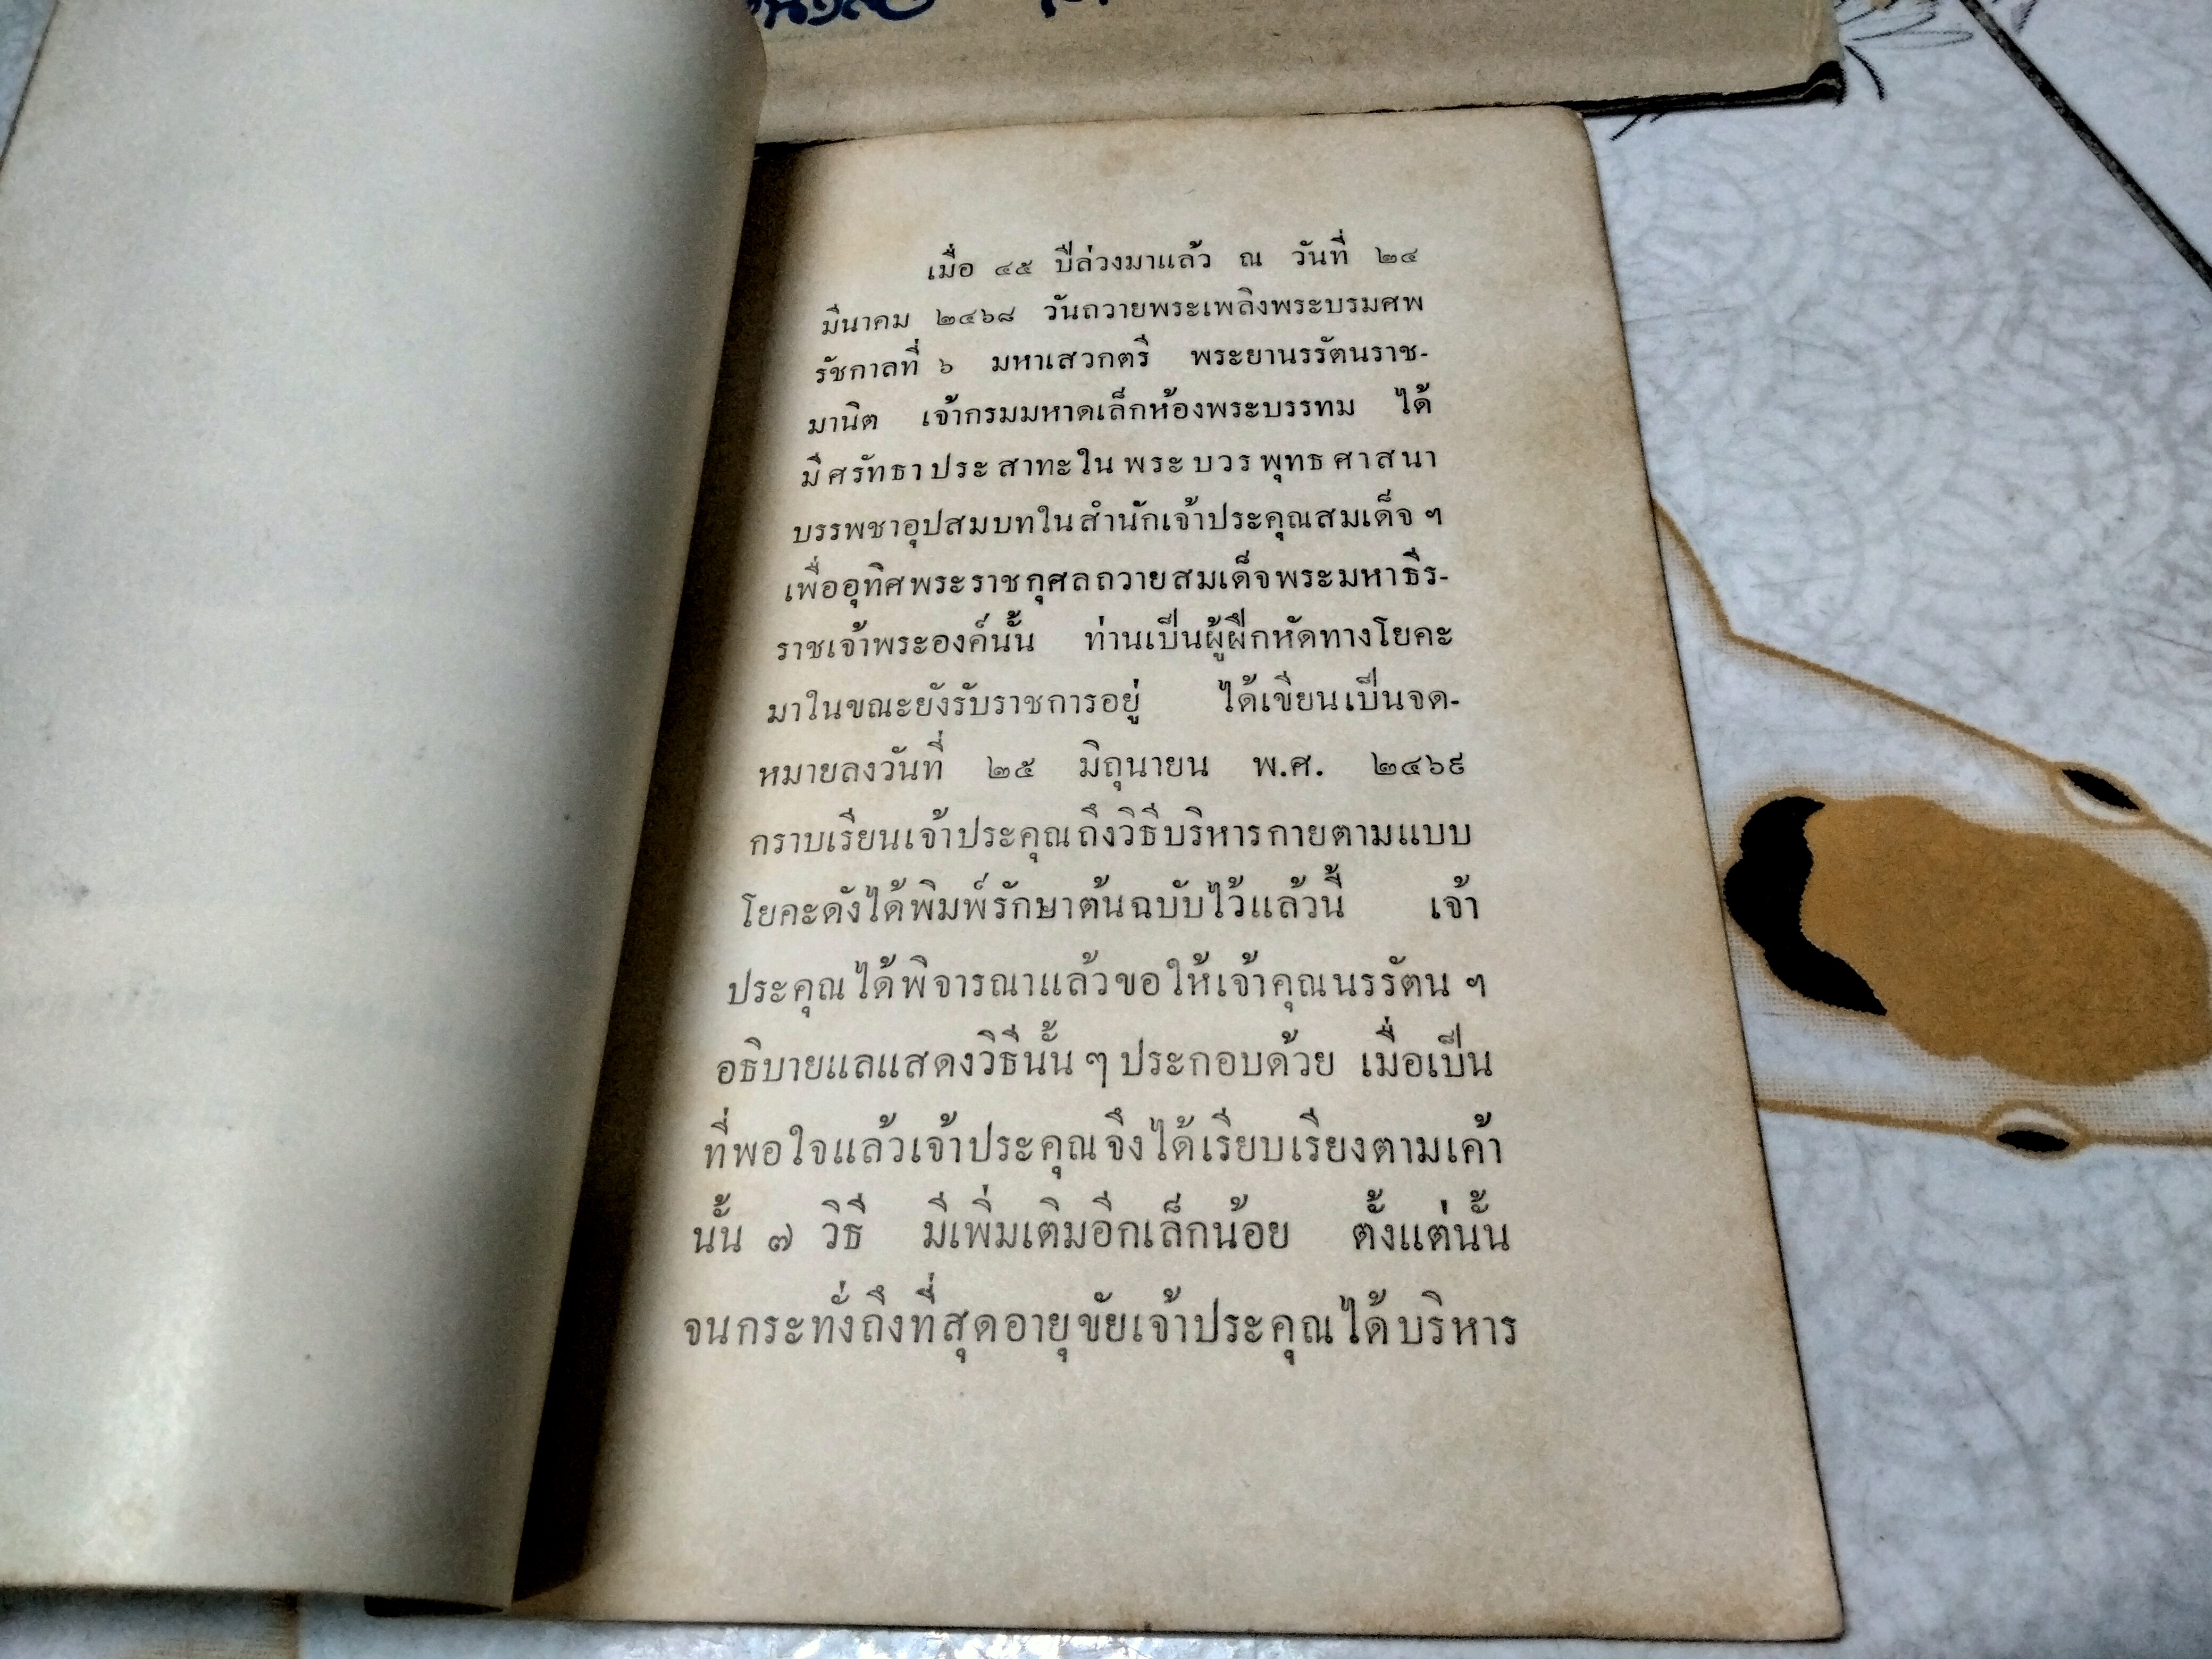 เมื่อ ๔๕ ปีล่วงมาแล้ว ณ วันที่ ๒๔
มีนาคม ๒๔๖๘ วันถวายพระเพลิงพระบรมศพ
รัชกาลที่ ๖ มหาเสวกตรี พระยานรรัตนราช-
มานิต เจ้ากรมมหาดเล็กห้องพระบรรทม ได้
มีศรัทธาประสาทะในพระบวรพุทธศาสนา
บรรพชาอุปสมบทในสำนักเจ้าประคุณสมเด็จ ฯ
เพื่ออุทิศพระราชกุศลถวายสมเด็จพระมหาธีร-
ราชเจ้าพระองค์นั้น ท่านเป็นผู้ฝึกหัดทางโยคะ
มาในขณะยังรับราชการอยู่ ได้เขียนเป็นจด-
หมายลงวันที่ ๒๕ มิถุนายน พ.ศ. ๒๔๖๙
กราบเรียนเจ้าประคุณถึงวิธีบริหารกายตามแบบ
โยคะดังได้พิมพ์รักษาต้นฉบับไว้แล้วนี้ เจ้า
ประคุณได้พิจารณาแล้วขอให้เจ้าคุณนรรัตน ฯ
อธิบายแลแสดงวิธีนั้น ๆ ประกอบด้วย เมื่อเป็น
ที่พอใจแล้วเจ้าประคุณจึงได้เรียบเรียงตามเค้า
นั้น ๗ วิธี มีเพิ่มเติมอีกเล็กน้อย ตั้งแต่นั้น
จนกระทั่งถึงที่สุดอายุขัยเจ้าประคุณได้บริหาร